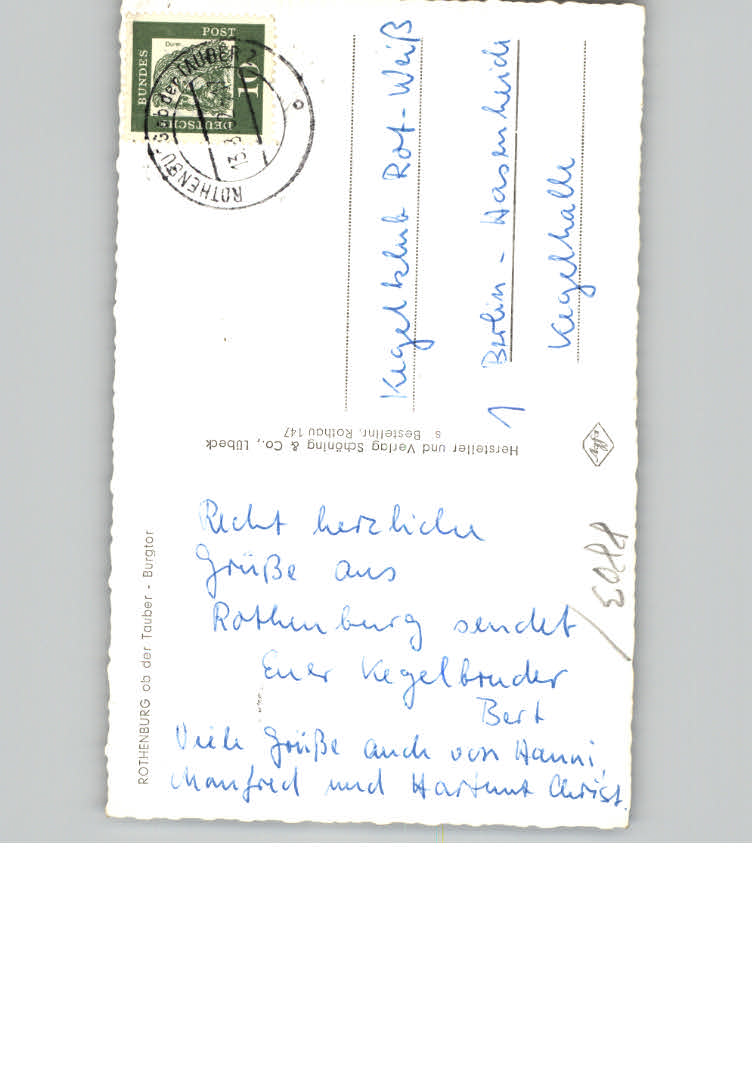 DEUTSCHE
BUNDES
POST
Dürer
10
ROTHENBURG ob der TAUBER 2
13.3
Kegelklub Rot-Weiß
1 Berlin - Hasenheide
Kegelhalle
Hersteller und Verlag Schöning & Co., Lübeck
s Bestellnr. Rothau 147
Agfa
ROTHENBURG ob der Tauber - Burgtor
Recht herzliche
Grüße aus
Rothenburg sendet
Euer Kegelbruder
Bert
Viele Grüße auch von Hanni,
Manfred und Hartmut Christ.